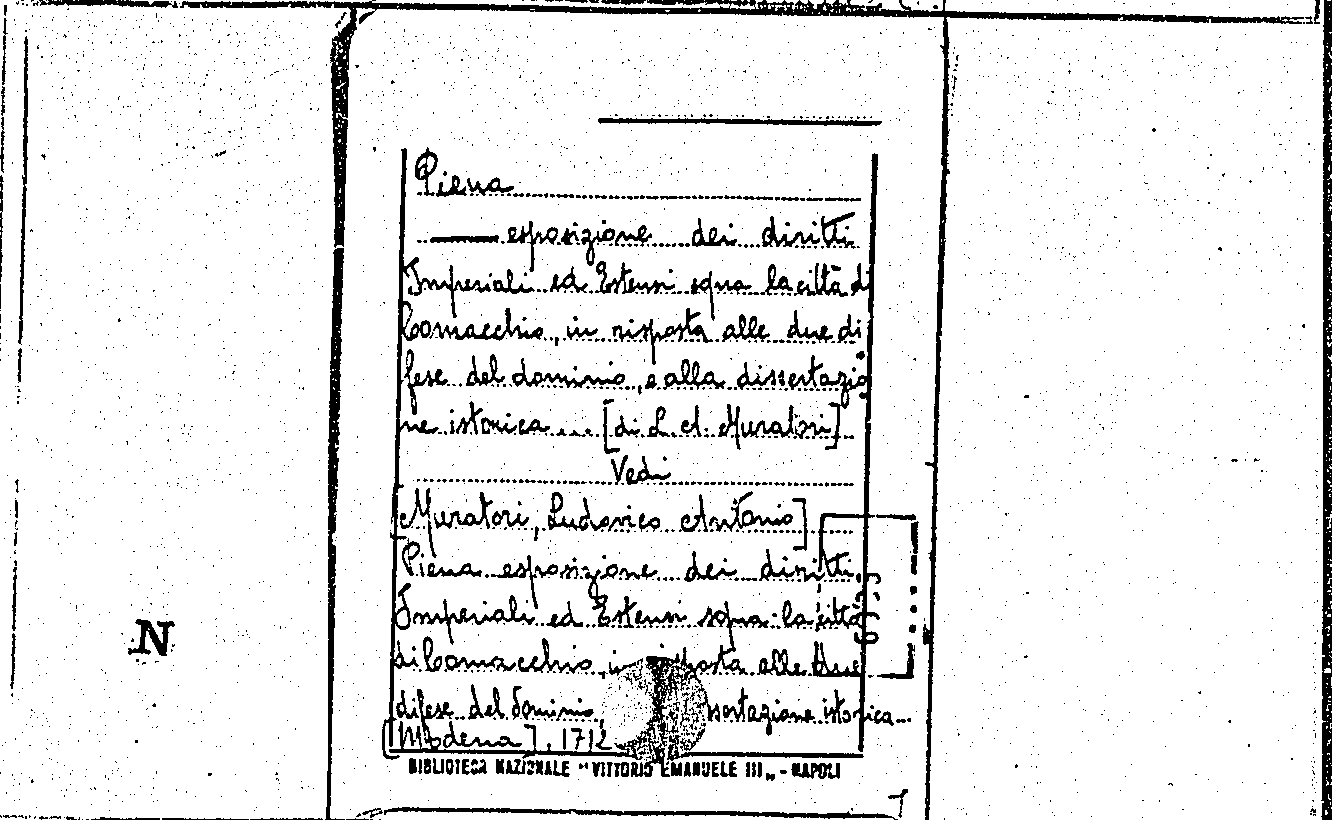 Piena
esposizione dei diritti
Imperiali ed Estensi sopra la città di
Comacchio, in risposta alle due di
fese del dominio, e alla dissertazio
ne istorica... [di L. A. Muratori]
Vedi
[Muratori, Ludovico Antonio]
Piena esposizione dei diritti
Imperiali ed Estensi sopra la città
di Comacchio, in risposta alle due
difese del dominio, istorica...
[Modena], 1712
BIBLIOTECA NAZIONALE "VITTORIO EMANUELE III" - NAPOLI
N